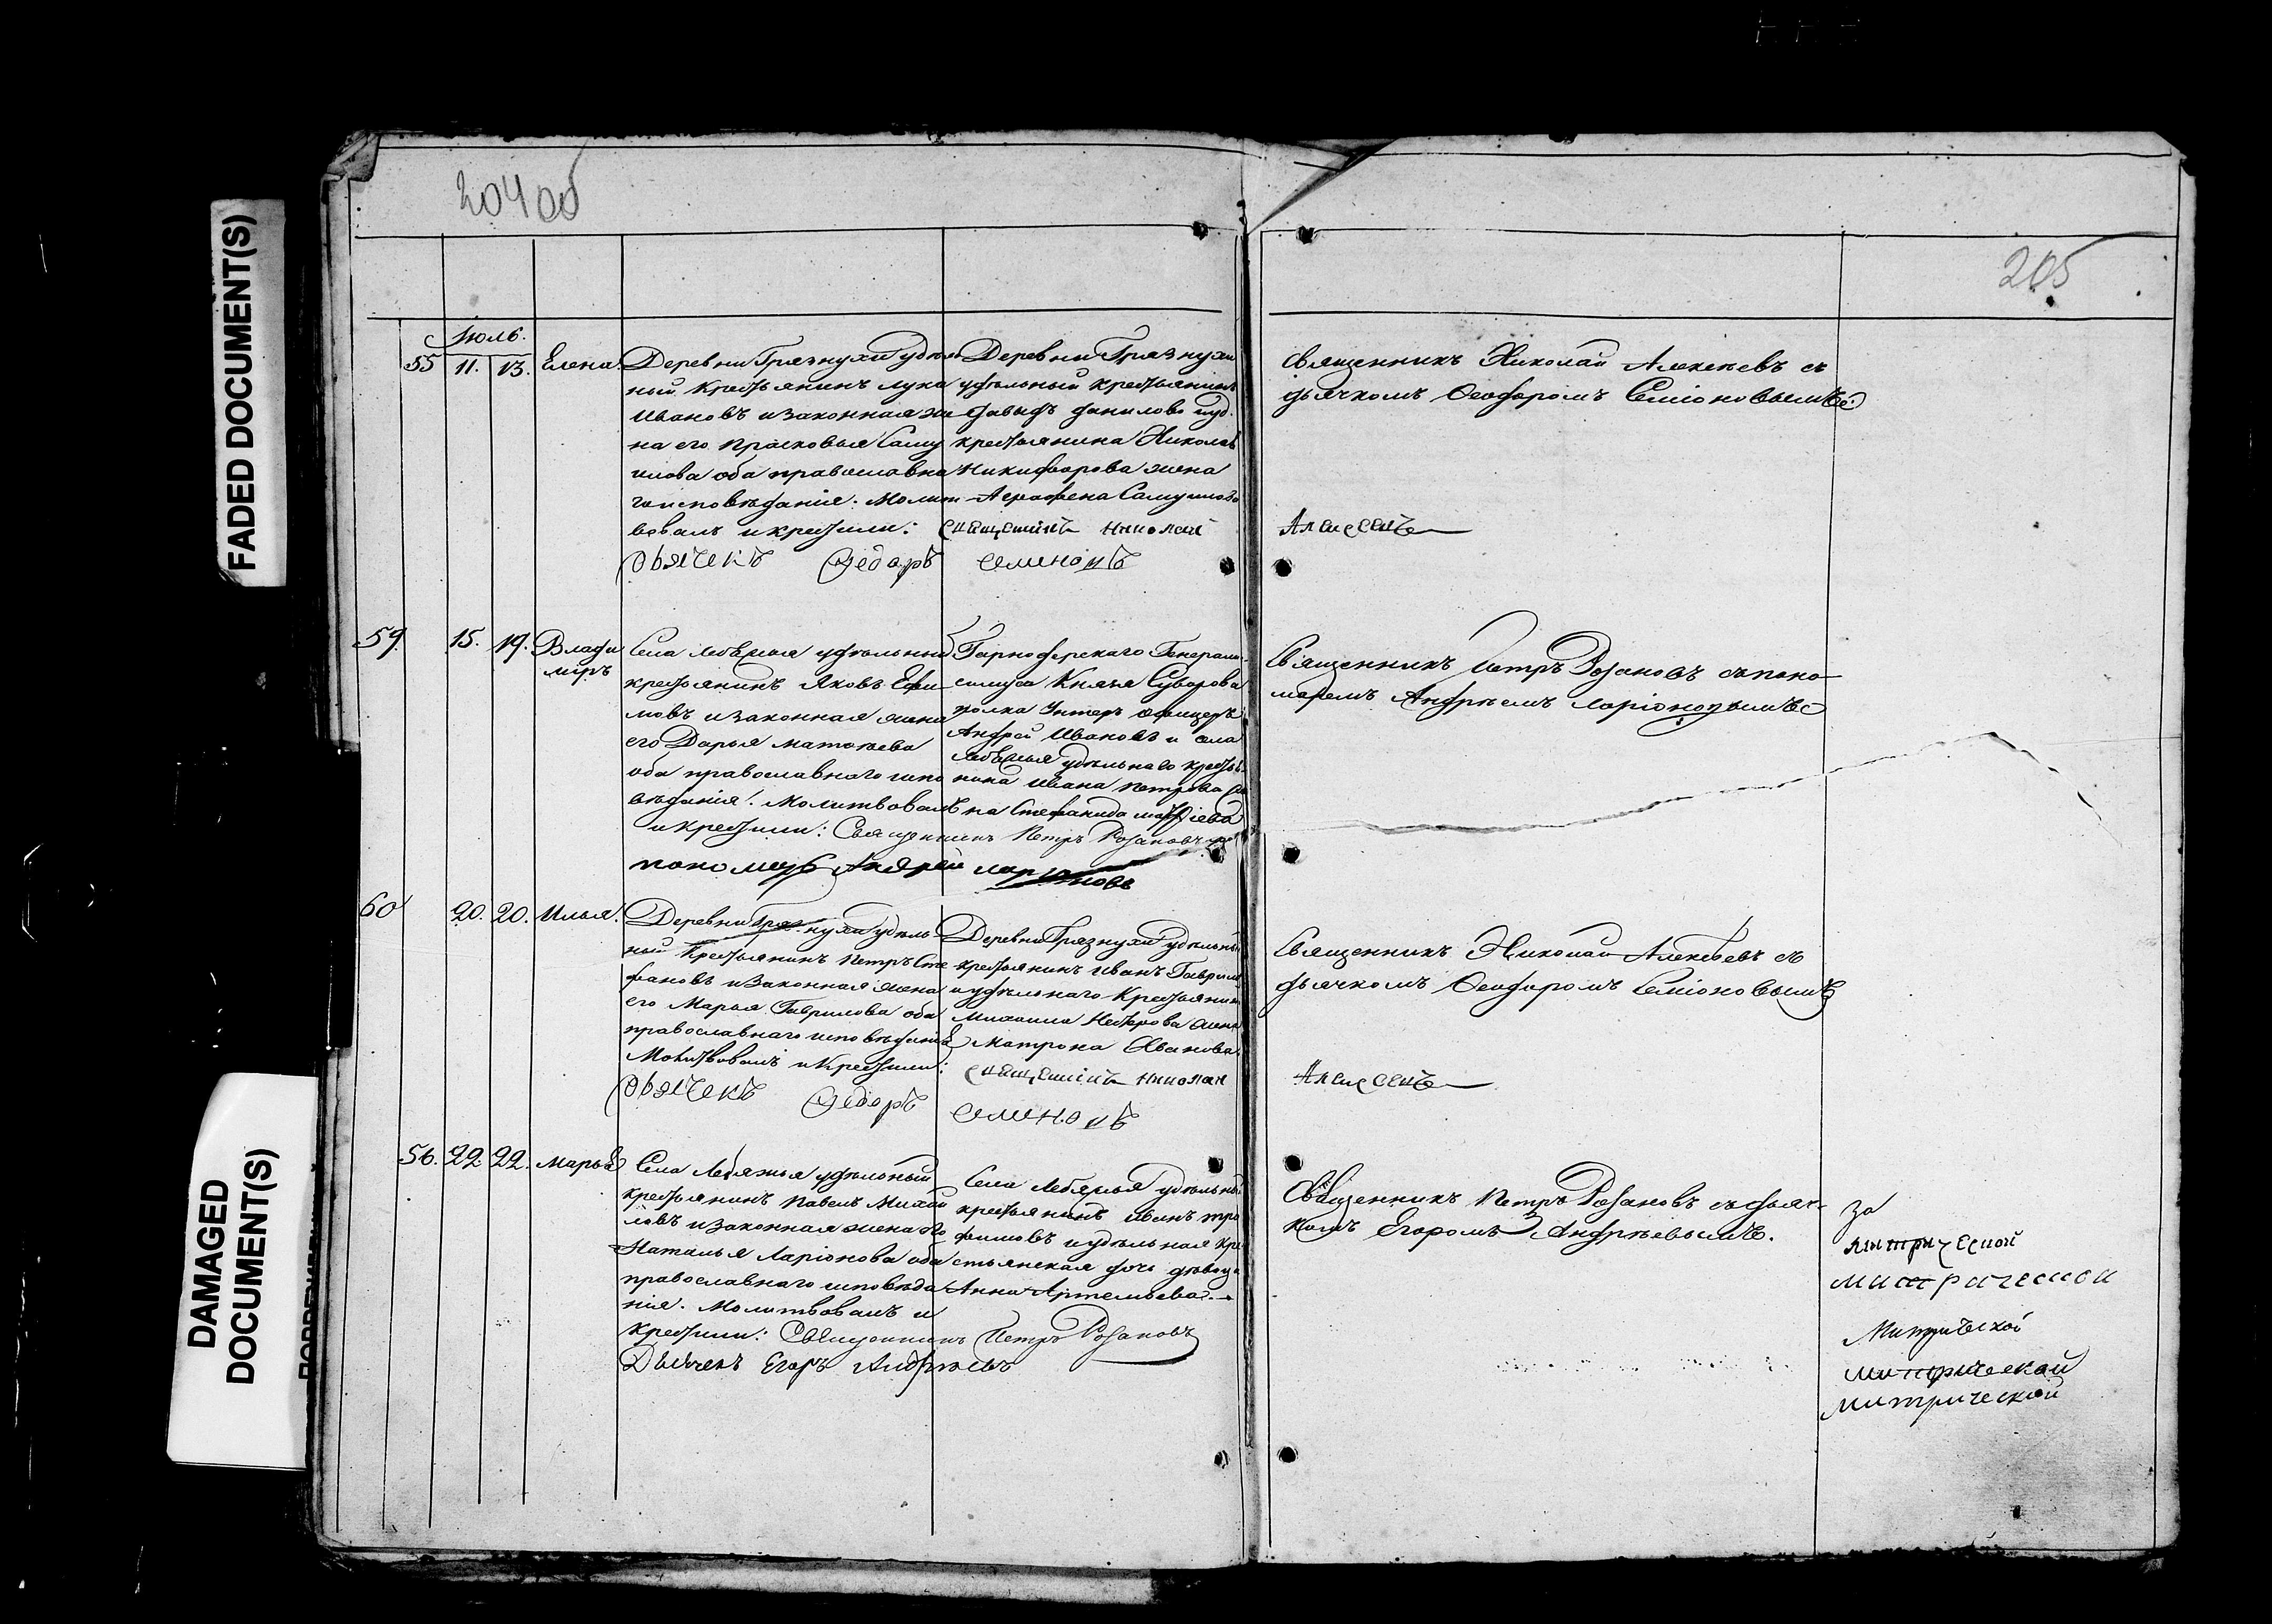 FADED DOCUMENT(S)
DAMAGED
DOCUMENT(S)
204 об
205
Июль.
55 11. 13. Елена.
Деревни Грязнухи удѣль
ный крестьянинъ Лука
Ивановъ и законная же
на его Прасковья Саму
илова оба православна
го исповѣданія. Молит
вовалъ и крестили:
Деревни Грязнухи
удѣльный крестьянинъ
Давыдъ Данилово и уд.
крестьянина Николая
Никифорова жена
Аграфена Самуилова
священникъ Николай
Алексеевъ
Дьячекъ Федоръ Семеновъ
священникъ Николай Алексѣевъ съ
дьячкомъ Ѳеодоромъ Семіоновымъ
59. 15. 19. Влади
міръ
Села Лебяжья удѣльный
крестьянинъ Яковъ Ефи
мовъ и законная жена
его Дарья Матвѣева
оба православнаго испо
вѣданія. Молитвовалъ
и крестили: Священникъ Петръ Розановъ
пономарь Андрей Ларионовъ
Генерали
симуса Князя Суворова
полка Унтеръ офицеръ
Андрей Ивановъ и села
Лебяжья удѣльнаго крестья
нина Ивана Петрова
на Стефанида
Священникъ Петръ Розановъ съ поно
маремъ Андрѣемъ Ларіоновымъ
60 20. 20. Илья.
Деревни Грязнухи удѣль
ный Крестьянинъ Петръ Сте
фановъ и законная жена
его Марья Гаврилова оба
православнаго исповѣданія
Молитвовалъ и Крестили:
Деревни Грязнухи удѣльный
крестьянинъ Иванъ Гаврилов
и удѣльнаго Крестьянина
Михаила жена
Матрона Иванова.
священникъ Николай
Алексеевъ
Дьячекъ Федоръ Семеновъ
Священникъ Николай Алексѣевъ съ
дьячкомъ Ѳеодоромъ Семіоновымъ
56. 22. 22. Марья
Села Лебяжья удѣльный
крестьянинъ Павелъ Михай
ловъ и законная жена его
Наталья Ларіонова оба
православнаго исповѣда
нія. Молитвовалъ и
крестили: Священникъ Петръ Розановъ
Дьячекъ Егоръ Андрѣевъ
Села Лебяжья удѣльный
крестьянинъ Иванъ Тро
фимовъ и удѣльная кре
стьянская дочь дѣвица
Анна Артемьева.
Священникъ Петръ Розановъ съ дьяч
комъ Егоромъ Андрѣевымъ.
За
митрической
митрической
Митрической
митрической
митрической